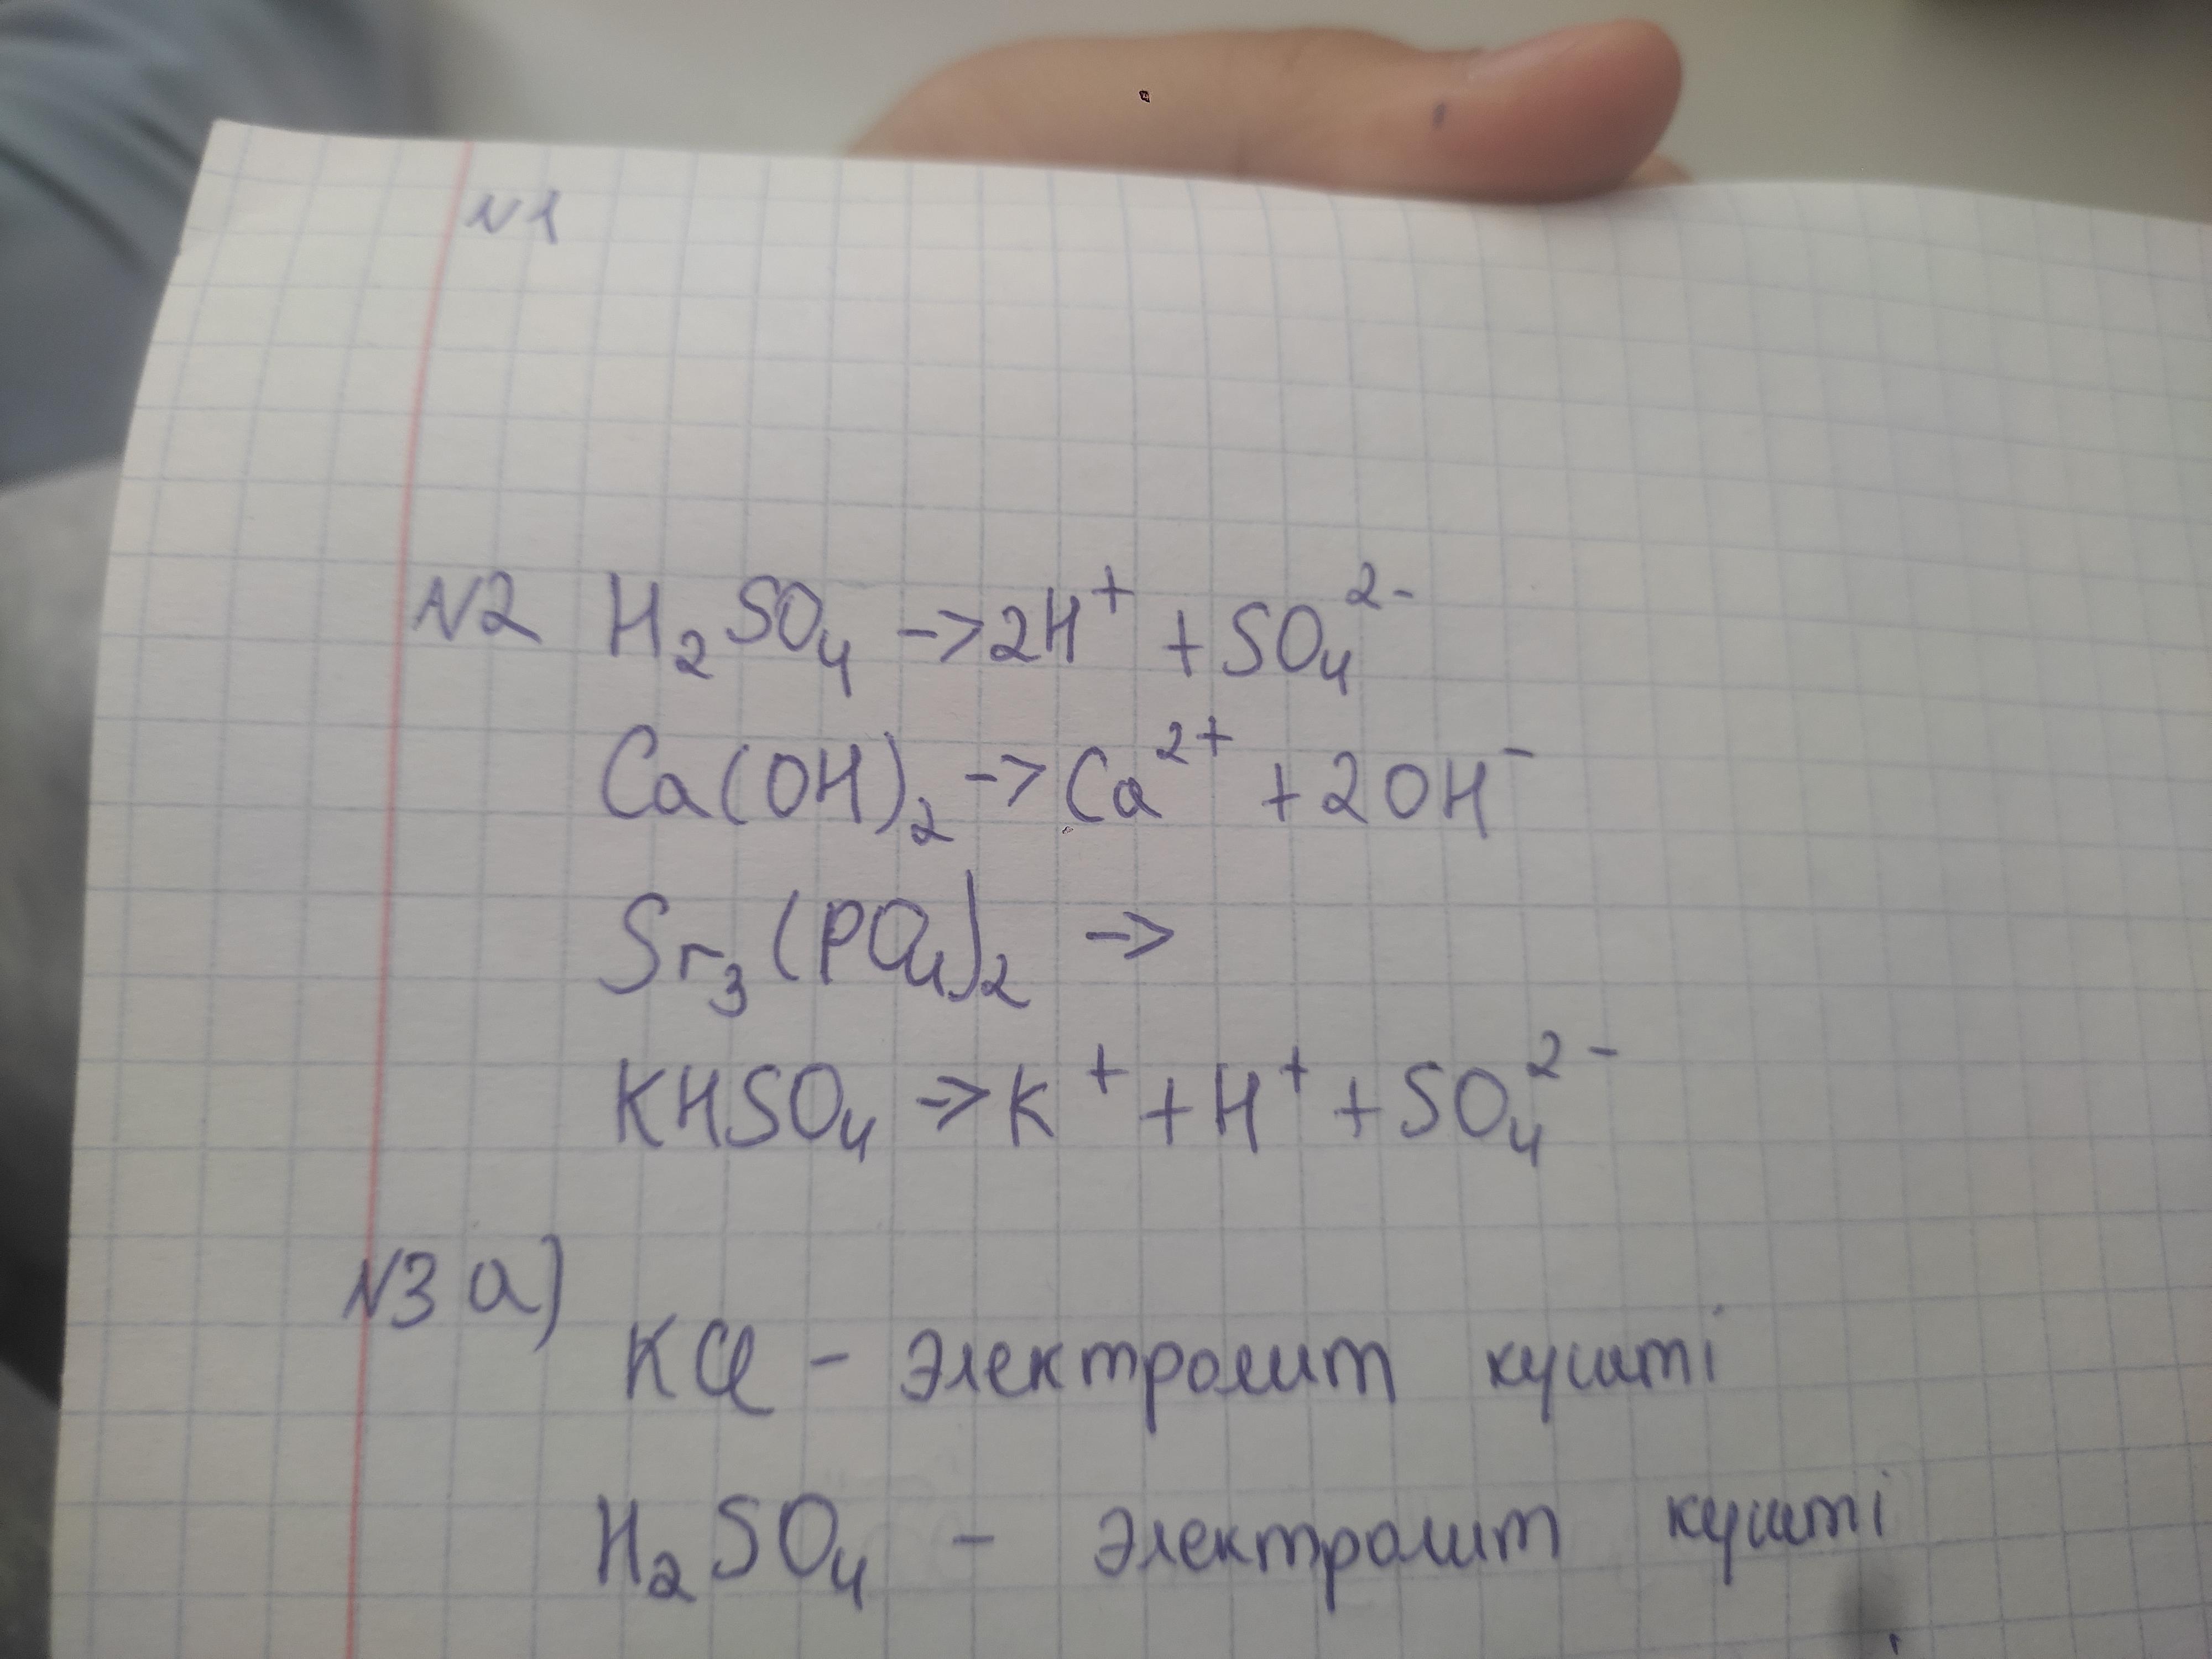 N1
N2 H₂SO₄ -> 2H⁺ + SO₄²⁻
Ca(OH)₂ -> Ca²⁺ + 2OH⁻
Sr₃(PO₄)₂ ->
KHSO₄ -> K⁺ + H⁺ + SO₄²⁻
N3 a)
KCl - электролит кушті
H₂SO₄ - электролит кушті